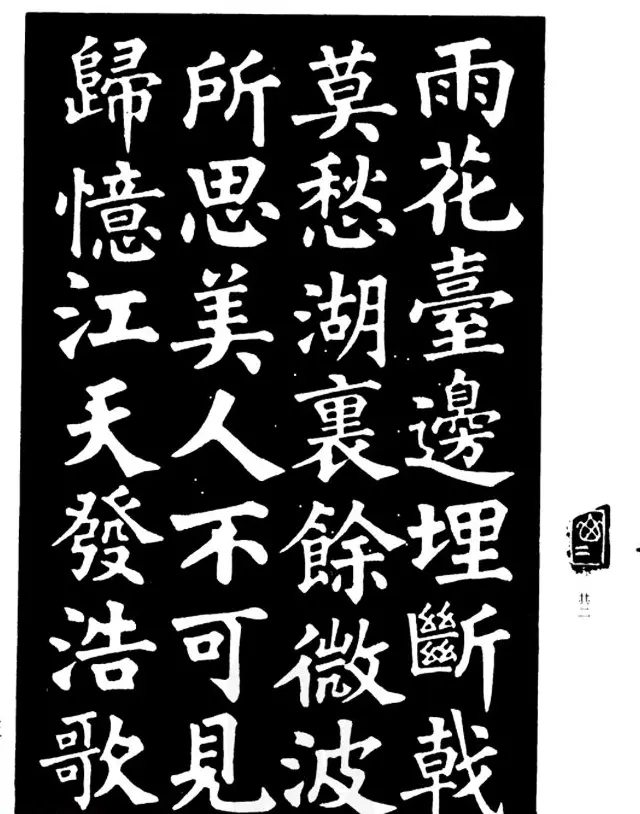 雨花臺邊埋斷戟
莫愁湖裏餘微波
所思美人不可見
歸憶江天發浩歌
其二